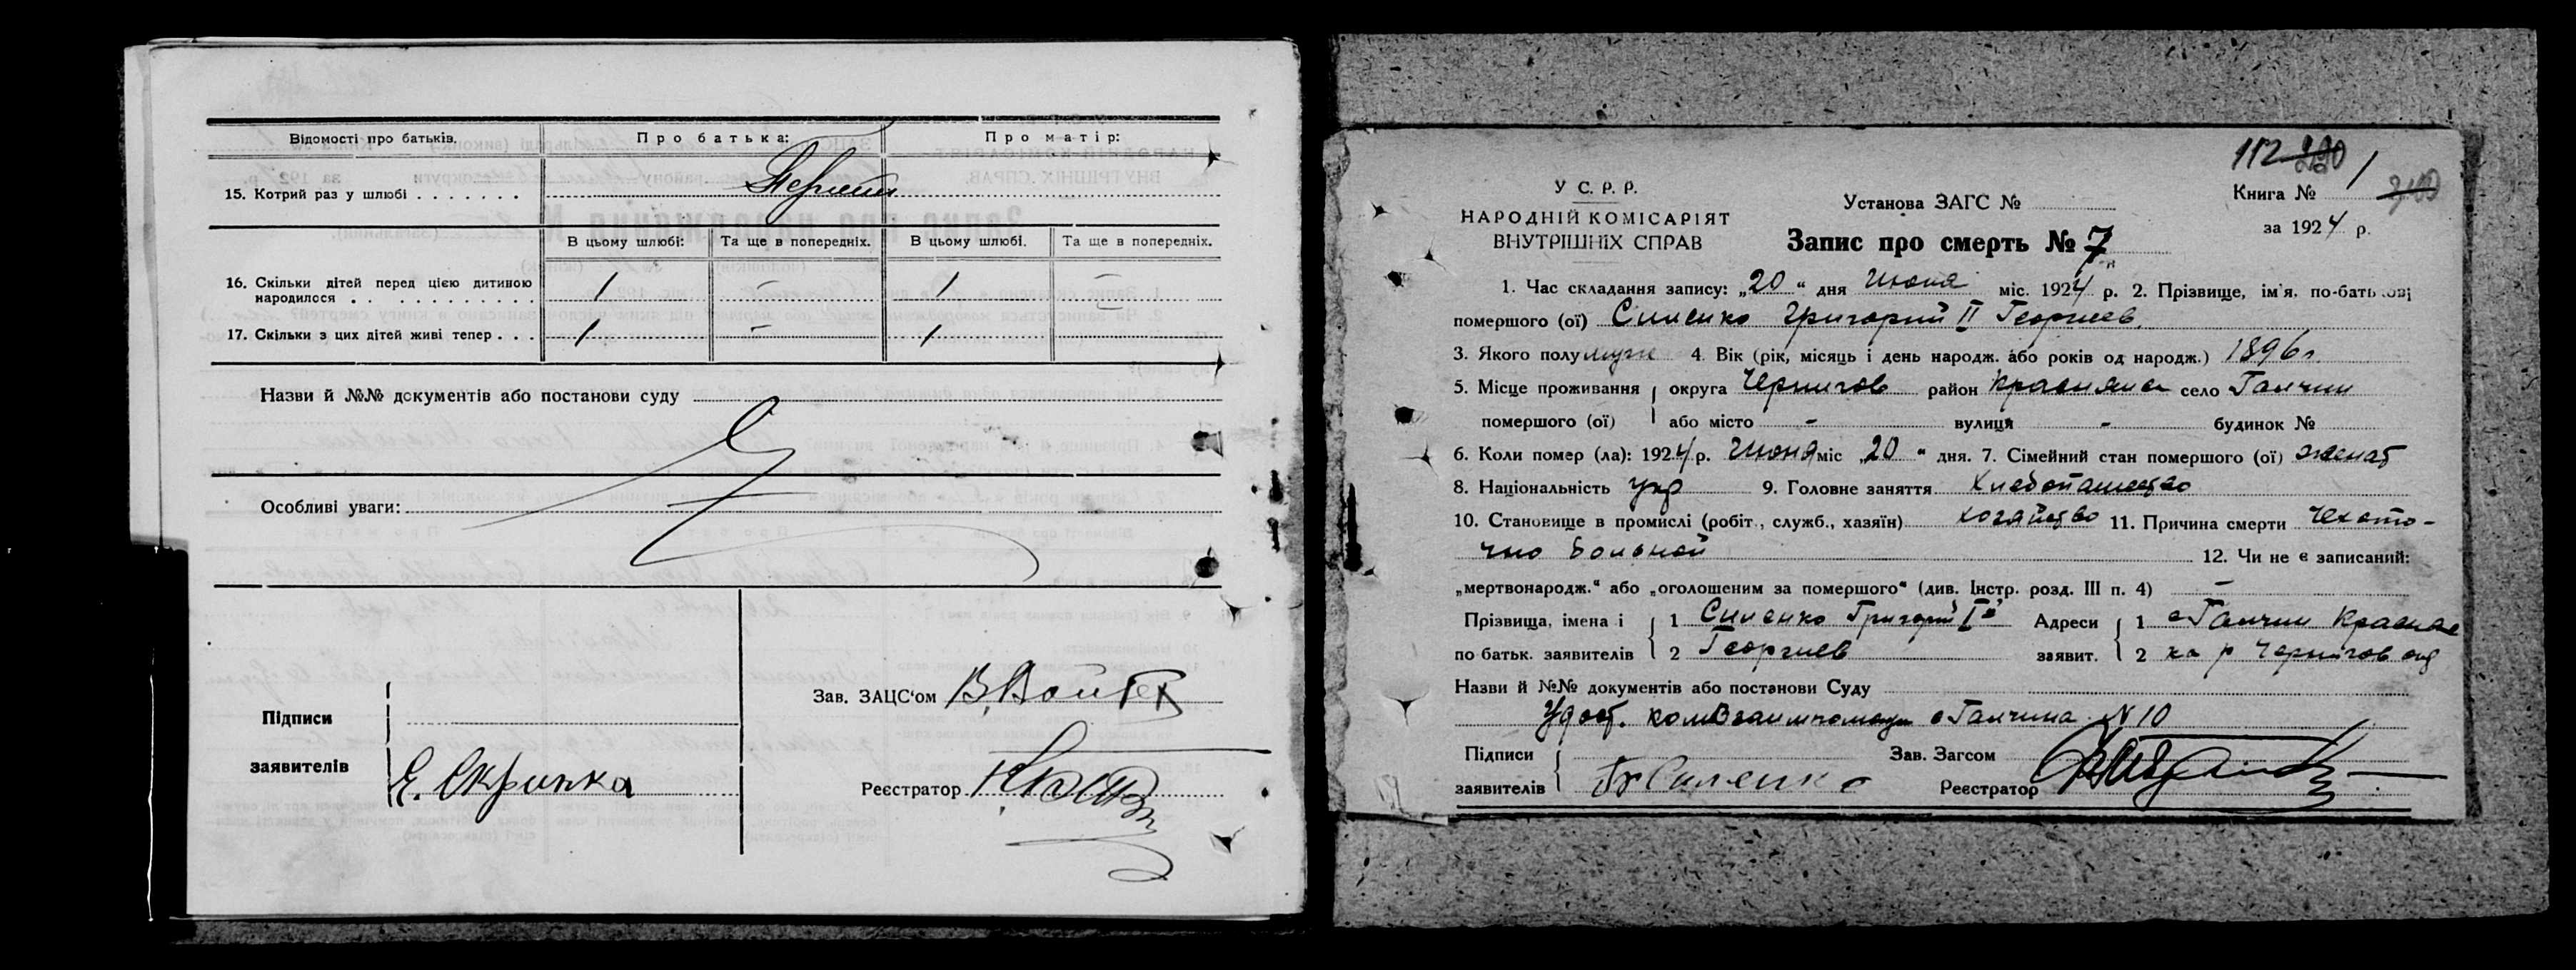 Відомості про батьків.
Про батька:
Про матір:
15. Котрий раз у шлюбі . . . . . . .
В цьому шлюбі:
Та ще в попередніх.
В цьому шлюбі.
Та ще в попередніх.
16. Скільки дітей перед цією дитиною
народилося . . . . . . . . . . . 1 — 1 —
17. Скільки з цих дітей живі тепер . . . 1 — 1
Назви й №№ документів або постанови суду
Особливі уваги:
Підписи
заявителів
Е. Скрипка
Зав. ЗАЦС'ом
Реєстратор
112 290
У С. Р. Р.
НАРОДНІЙ КОМІСАРІЯТ
ВНУТРІШНІХ СПРАВ
Установа ЗАГС №
Запис про смерть № 7
Книга № 1
за 1924 р.
1. Час складання запису: „20" дня Июня міс. 1924 р. 2. Прізвище, ім'я, по-батькові
помершого (ої) Силенко Григорий II Георгиев.
3. Якого полу муж 4. Вік (рік, місяць і день народж. або років од народж.) 1896 г.
5. Місце проживання округа Чернигов район село Ганчин
помершого (ої) або місто - вулиця - будинок №
6. Коли помер (ла): 1924 р. Июня міс „20" дня. 7. Сімейний стан помершого (ої) женат
8. Національність укр 9. Головне заняття Хлебопашество
10. Становище в промислі (робіт., служб., хазяїн) хозяйство 11. Причина смерти Чехото-
чно больной 12. Чи не є записаний:
„мертвонародж." або „оголошеним за помершого" (див. Інстр. розд. III п. 4) —
Прізвища, імена і 1 Силенко Григорий I й Адреси 1 с Ганчин
по батьк. заявителів 2 Георгиев заявит. 2 р Чернигов
Назви й №№ документів або постанови Суду
Удост. комВзаимпомощи с Ганчина N 10
Підписи
заявителів
Силенко
Зав. Загсом
Реєстратор